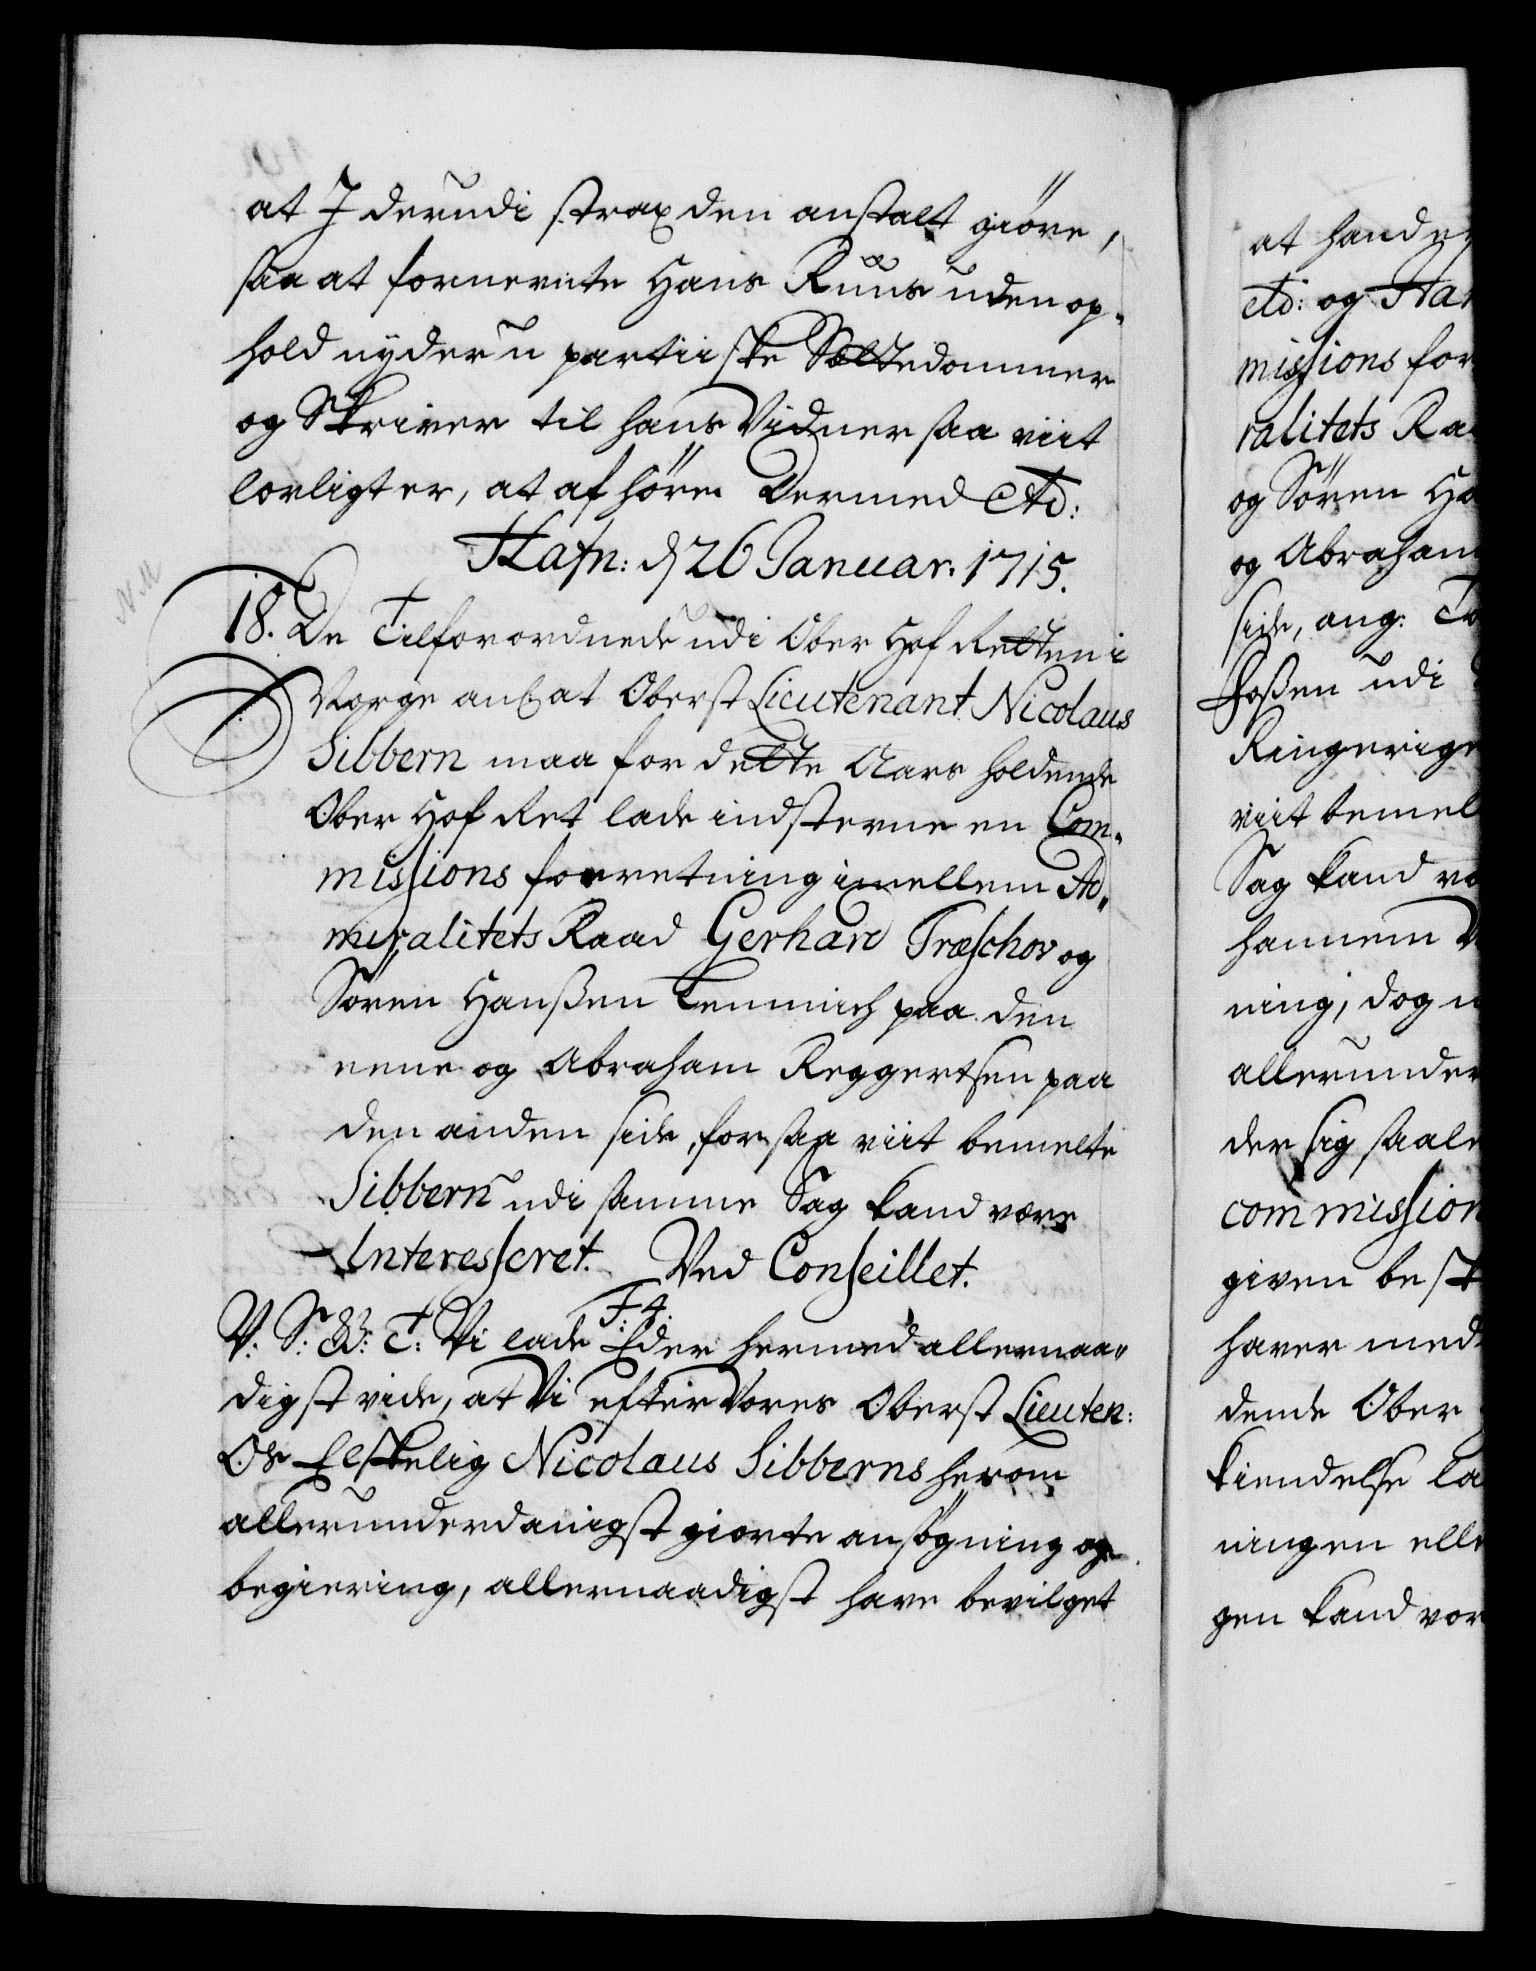 at I derudi strax den anstalt giöre,
saa at fornevnte Hans Ruus uden op-
hold nyder u partiiske Sættedommer
og Skriver til hans Vidner saa viit
lovligt er, at afhöre. Dermed etc:
Hafn: d 26 Januar: 1715.
18. De Tilforordnede udi Ober Hof Retten i
Norge anl: at Oberst Lieutenant Nicolaus
Sibbern maa for dette Aars holdende
Ober Hof Ret lade indstevne en Com-
missions forretning imellem Ad-
miralitets Raad Gerhard Træschov og
Sören Hanßen Lemmich paa den
eene og Abraham Reggertsen paa
den anden side, forsaa viit bemelte
Sibbern udi samme Sag kand være
Interesseret. Ved Conseillet.
F: 4.
V: S: G: T: Vi lade Eder hermed allernaa-
digst vide, at Vi efter Vores Oberst Lieuten:
Os Elskelig Nicolaus Sibberns herom
allerunderdanigst giorte ansögning og
begiering, allernaadigst have bevilget
at hande
etc: og Ha
missions for
ralitets Ra
og Sören Ha
og Abraham
side, ang: To
Foßen udi
Ringerige
viit bemel
Sag kand væ
hannem V
ning, dog u
allerunder
der sig saale
commission
given besk
haver med
dende Ober
kiendelse la
ningen elle
gen kand vor